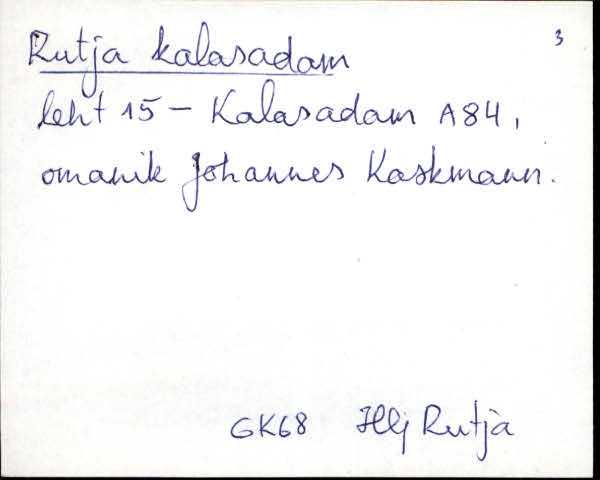 Rutja kalasadam 3
leht 15 - Kalasadam A84,
omanik Johannes Kaskmann.
GK68 Hlj Rutja